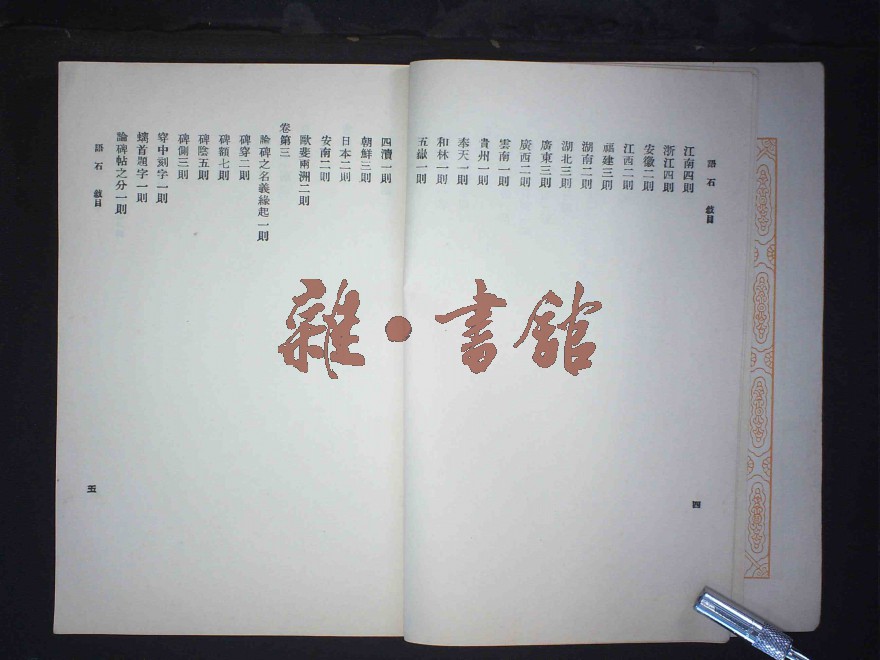 語石 敍目
江南四則
浙江四則
安徽二則
江西二則
福建三則
湖南二則
湖北三則
廣東三則
廣西二則
雲南一則
貴州一則
奉天一則
和林一則
五嶽一則
四
四瀆一則
朝鮮三則
日本二則
安南二則
歐斐兩洲二則
卷第三
論碑之名義緣起一則
碑穿二則
碑額七則
碑陰五則
碑側三則
穿中刻字一則
螭首題字一則
論碑帖之分一則
語石 敍目
五
雜·書館